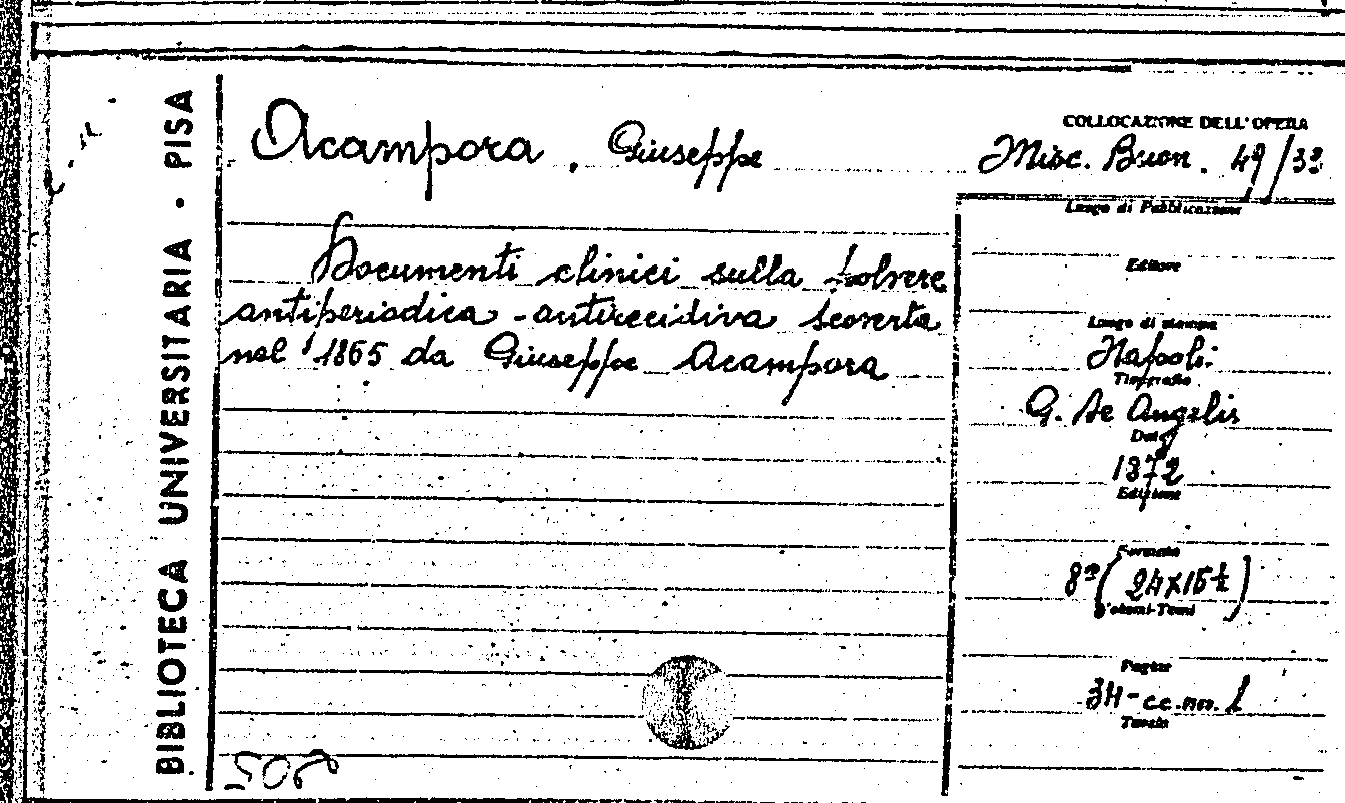 BIBLIOTECA UNIVERSITARIA · PISA
Acampora, Giuseppe
Documenti clinici sulla polvere
antiperiodica-antirecidiva scoverta
nel 1865 da Giuseppe Acampora
COLLOCAZIONE DELL'OPERA
Misc. Buon. 49/33
Luogo di Pubblicazione
Editore
Luogo di stampa
Napoli
Tipografia
G. De Angelis
Data
1872
Edizione
Formato
8º (24x15½)
Volumi-Tomi
Pagine
34-cc.nn. 1
Tavole